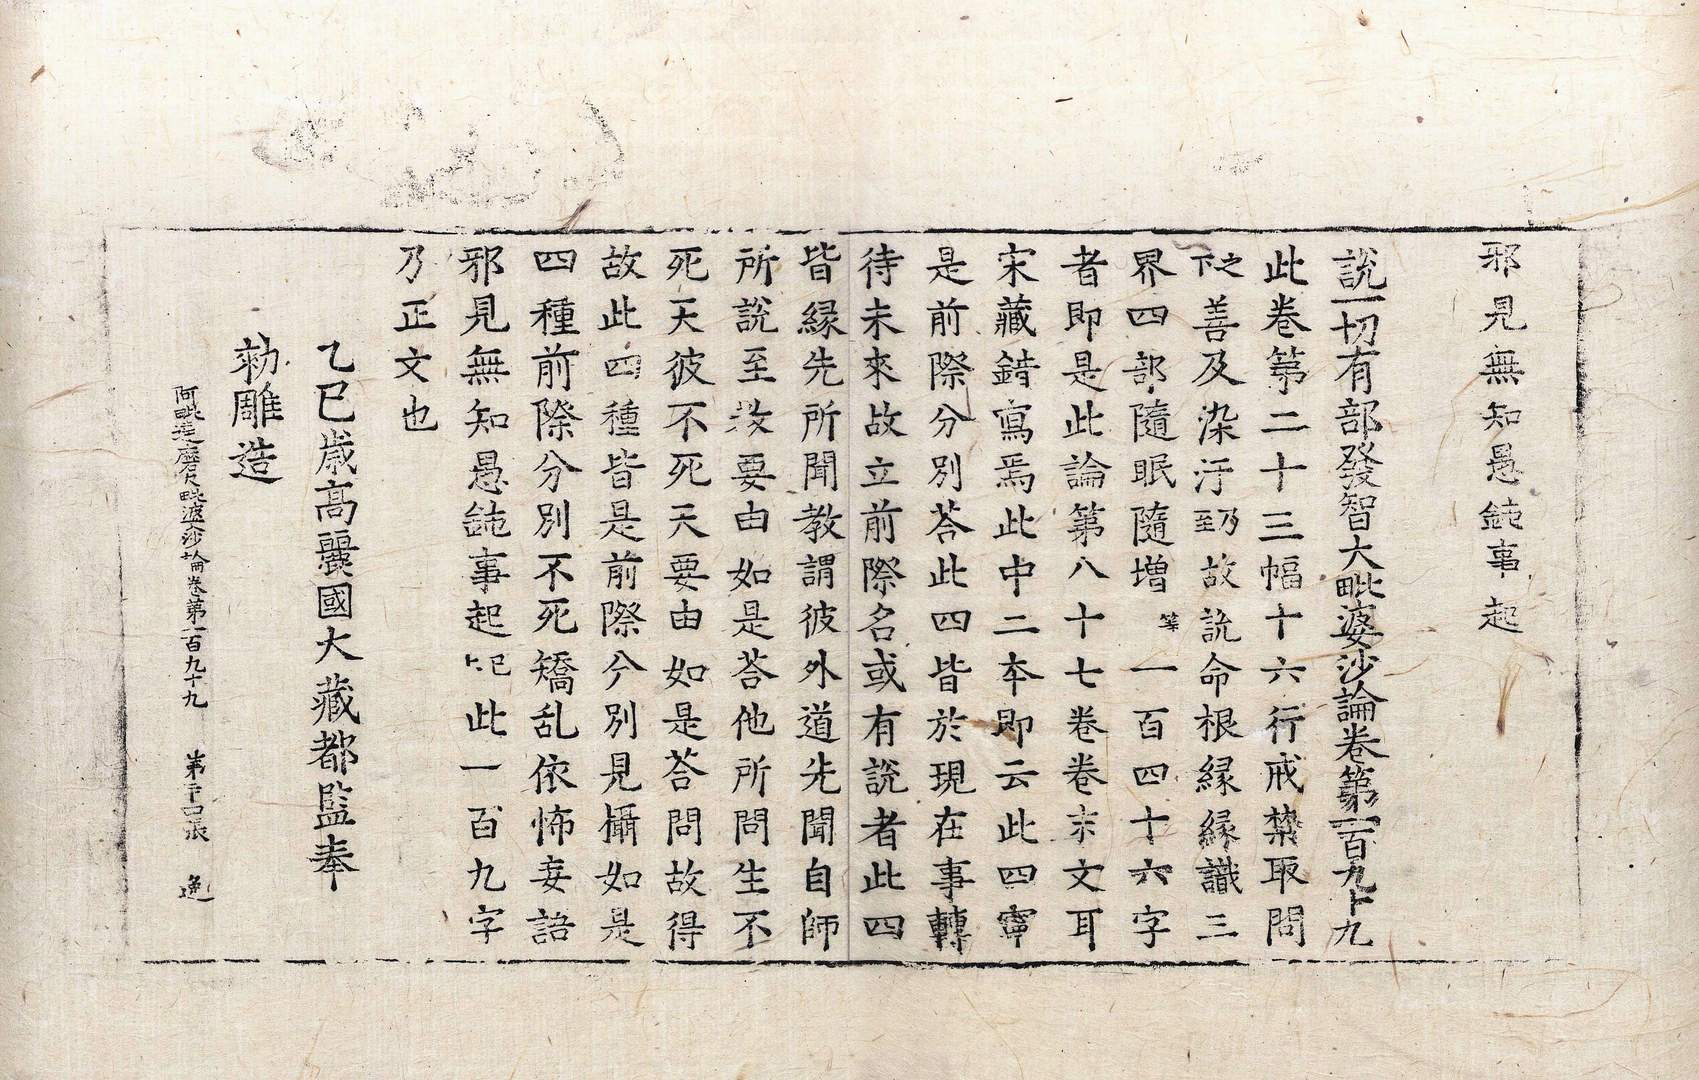 邪見無知愚鈍事起
說一切有部發智大毗婆沙論卷第一百九十九
此卷第二十三幅十六行戒禁取問
之下善及染汙乃至故說命根緣緣識三
界四部隨眠隨增等一百四十六字
者即是此論第八十七卷卷末文耳
宋藏錯寫焉此中二本即云此四寧
是前際分別荅此四皆於現在事轉
待未來故立前際名或有說者此四
皆緣先所聞教謂彼外道先聞自師
所說至教要由如是荅他所問生不
死天彼不死天要由如是荅問故得
故此四種皆是前際分別見攝如是
四種前際分別不死矯乱依怖妄語
邪見無知愚鈍事起已上此一百九字
乃正文也
乙巳歲高麗國大藏都監奉
勑雕造
阿毗達磨大毗婆沙論卷第一百九十九 第二十四張 逸